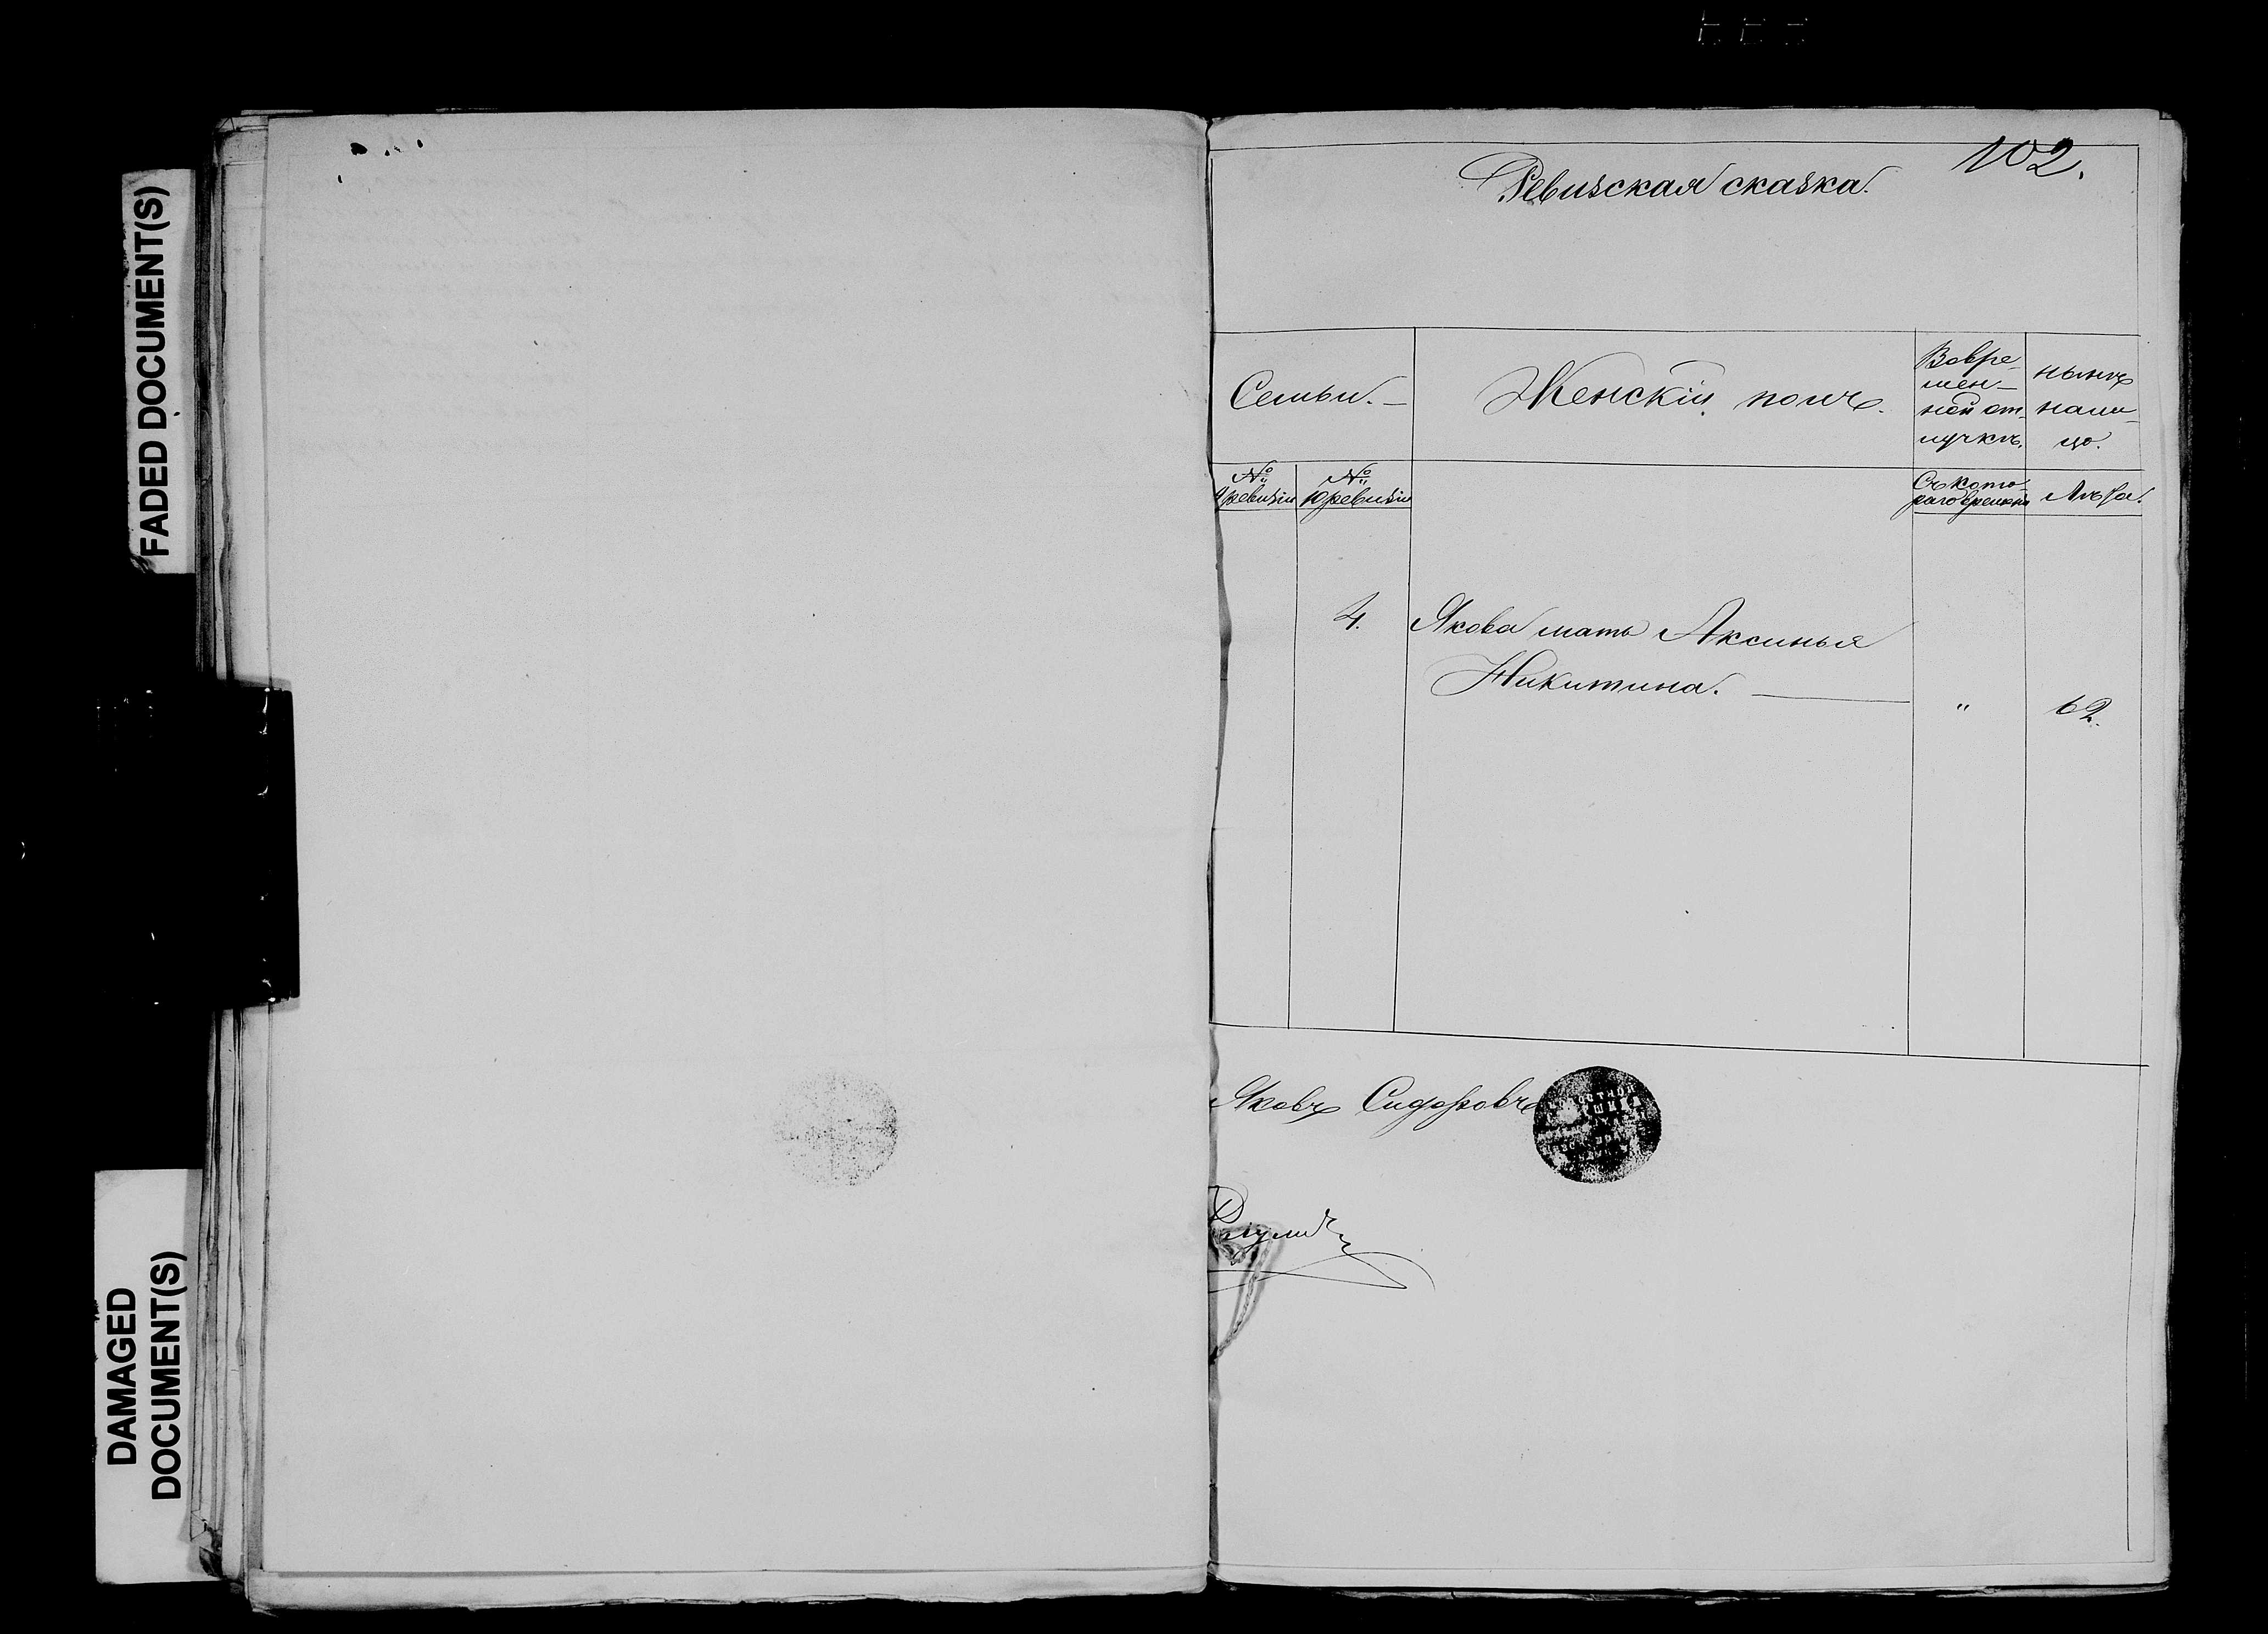 FADED DOCUMENT(S)
DAMAGED
DOCUMENT(S)
102.
Ревизская сказка.
Семьи.
Женскій полъ.
Вовре-
мен-
ной от-
лучкѣ.
нынѣ
нали-
цо.
№
ревизіи
№
10 ревизіи
Съ кото-
раго времени
Лѣта.
4.
Якова мать Аксинья
Никитина.
"
62.
Яковъ Сидоровъ